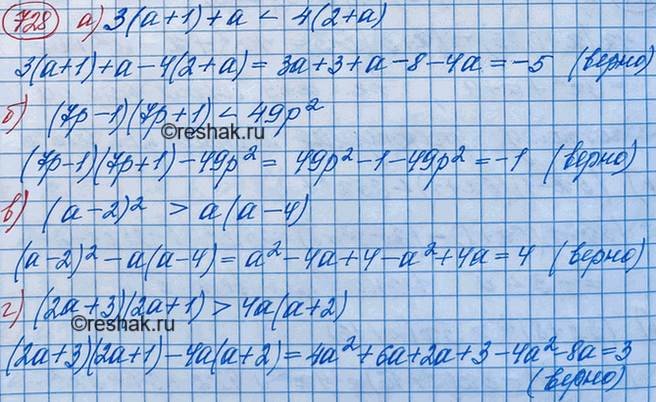 728 а) 3(a+1)+a < 4(2+a)
3(a+1)+a-4(2+a) = 3a+3+a-8-4a = -5 (верно)
б) (7p-1)(7p+1) < 49p²
©reshak.ru
(7p-1)(7p+1)-49p² = 49p²-1-49p² = -1 (верно)
в) (a-2)² > a(a-4)
(a-2)²-a(a-4) = a²-4a+4-a²+4a = 4 (верно)
г) (2a+3)(2a+1) > 4a(a+2)
©reshak.ru
(2a+3)(2a+1)-4a(a+2) = 4a²+6a+2a+3-4a²-8a = 3
(верно)